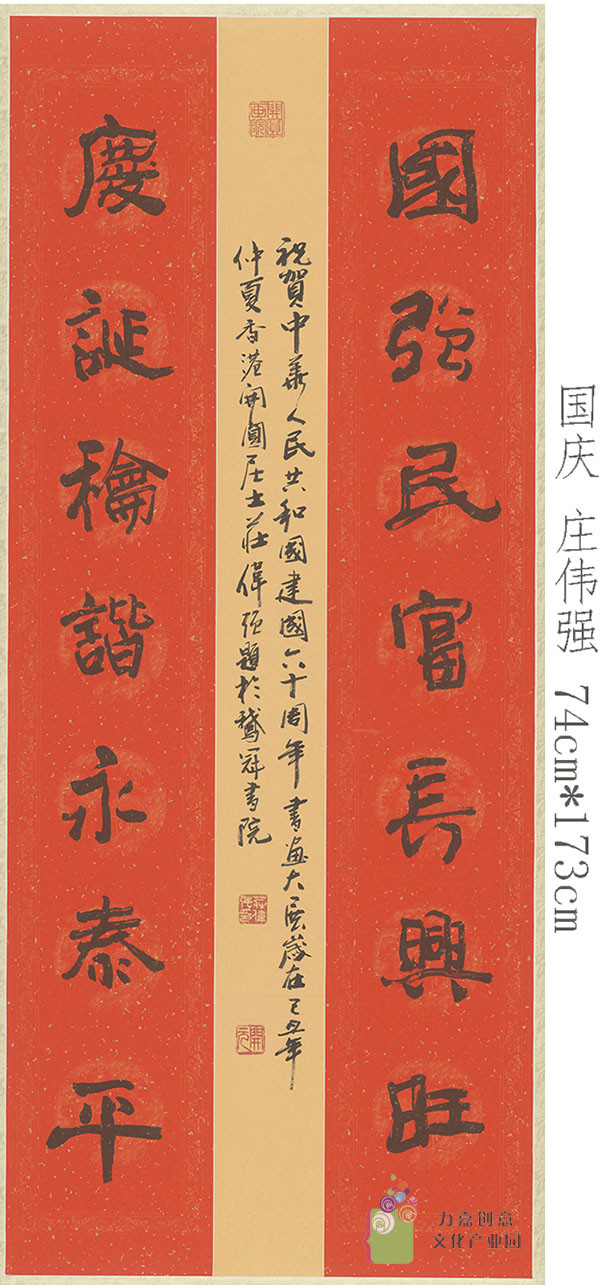 國強民富長興旺
慶誕穐諧永泰平
祝賀中華人民共和國建國六十周年書畫大展歲在己丑年
仲夏香港開圓居士莊偉强題於鵞冠書院
国庆 庄伟强 74cm*173cm
力嘉创意
文化产业园